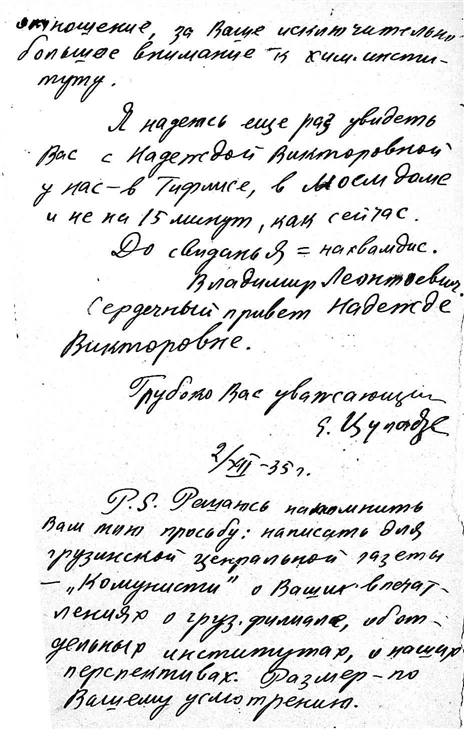 отношение, за Ваше исключительно
большое внимание к хим. инсти-
туту.
Я надеюсь еще раз увидеть
Вас с Надеждой Викторовной
у нас – в Тифлисе, в моем доме
и не на 15 минут, как сейчас.
До свиданья = нахвамдис.
Владимир Леонтьевич.
Сердечный привет Надежде
Викторовне.
Глубоко Вас уважающий
Цуладзе
2/XII – 35 г.
P.S. Решаюсь напомнить
Вам мою просьбу: написать для
грузинской центральной газеты
– „Комунисти" о Ваших впечат-
лениях о груз. филиале, об от-
дельных институтах, о наших
перспективах. Размер – по
Вашему усмотрению.